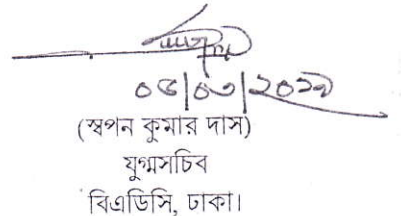 ০৪/০৩/২০১৯
(স্বপন কুমার দাস)
যুগ্মসচিব
বিএডিসি, ঢাকা।